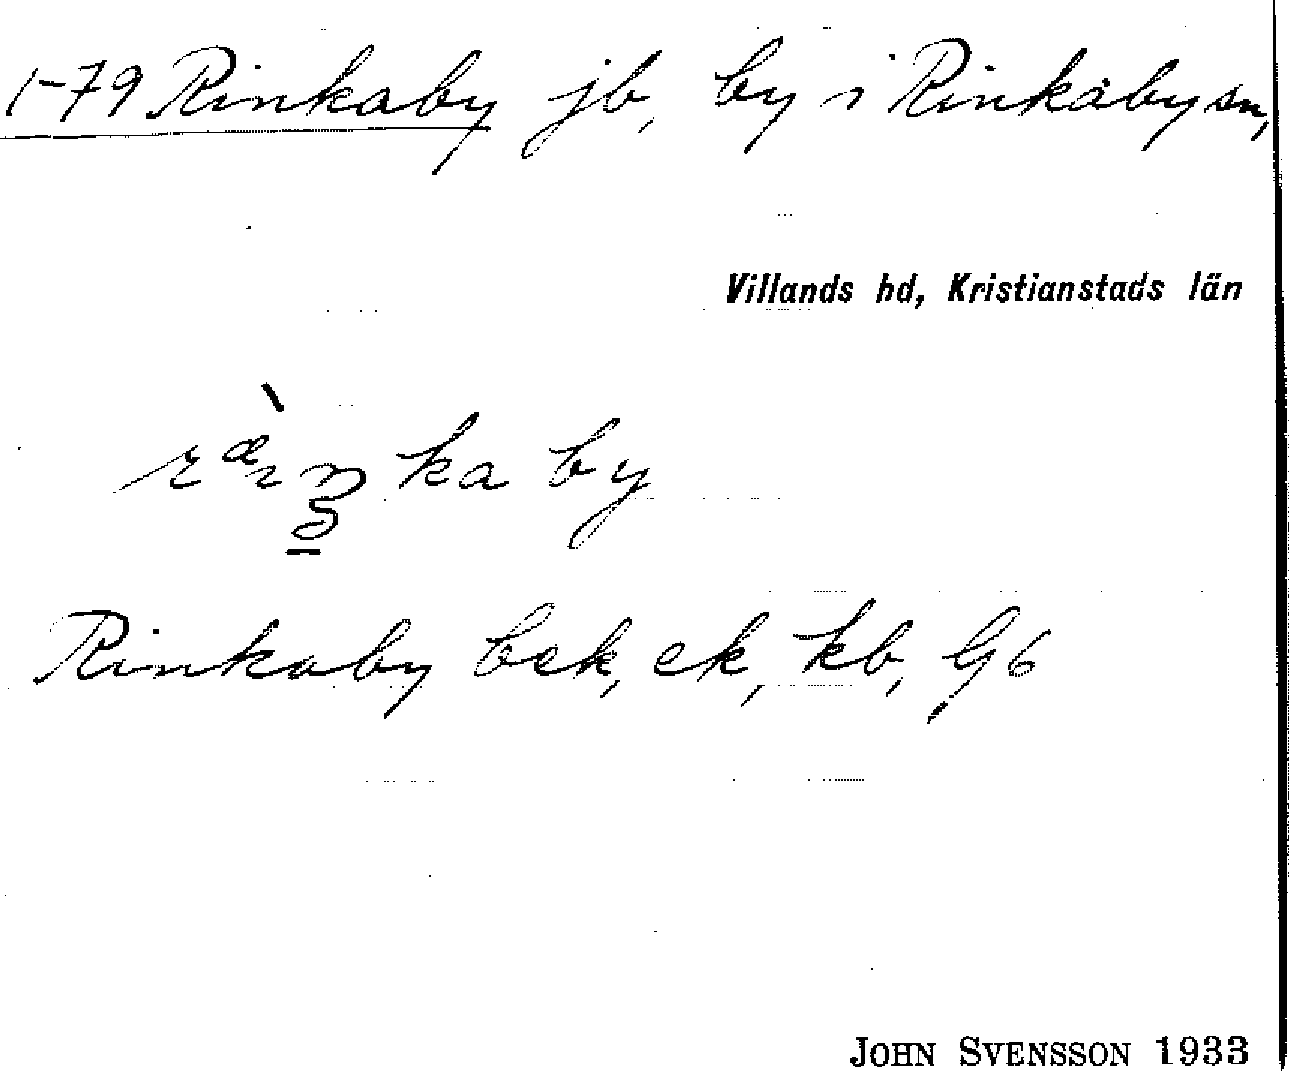 1-79 Rinkaby jb, by i Rinkaby sn,
Villands hd, Kristianstads län
kaby
Rinkaby bek, ek, kb, Gb
JOHN SVENSSON 1933